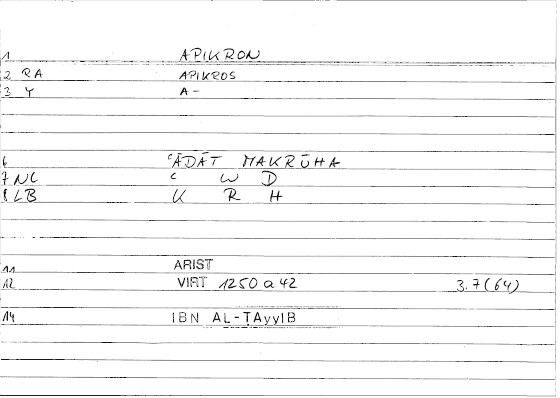 1 APIKRON
2 RA APIKROS
3 Y A-
6 ʿĀDĀT MAKRŪHA
7 NC ʿ W D
8 LB K R H
11 ARIST
12 VIRT 1250 a 42 3.7(64)
14 IBN AL-ṬAyyIB